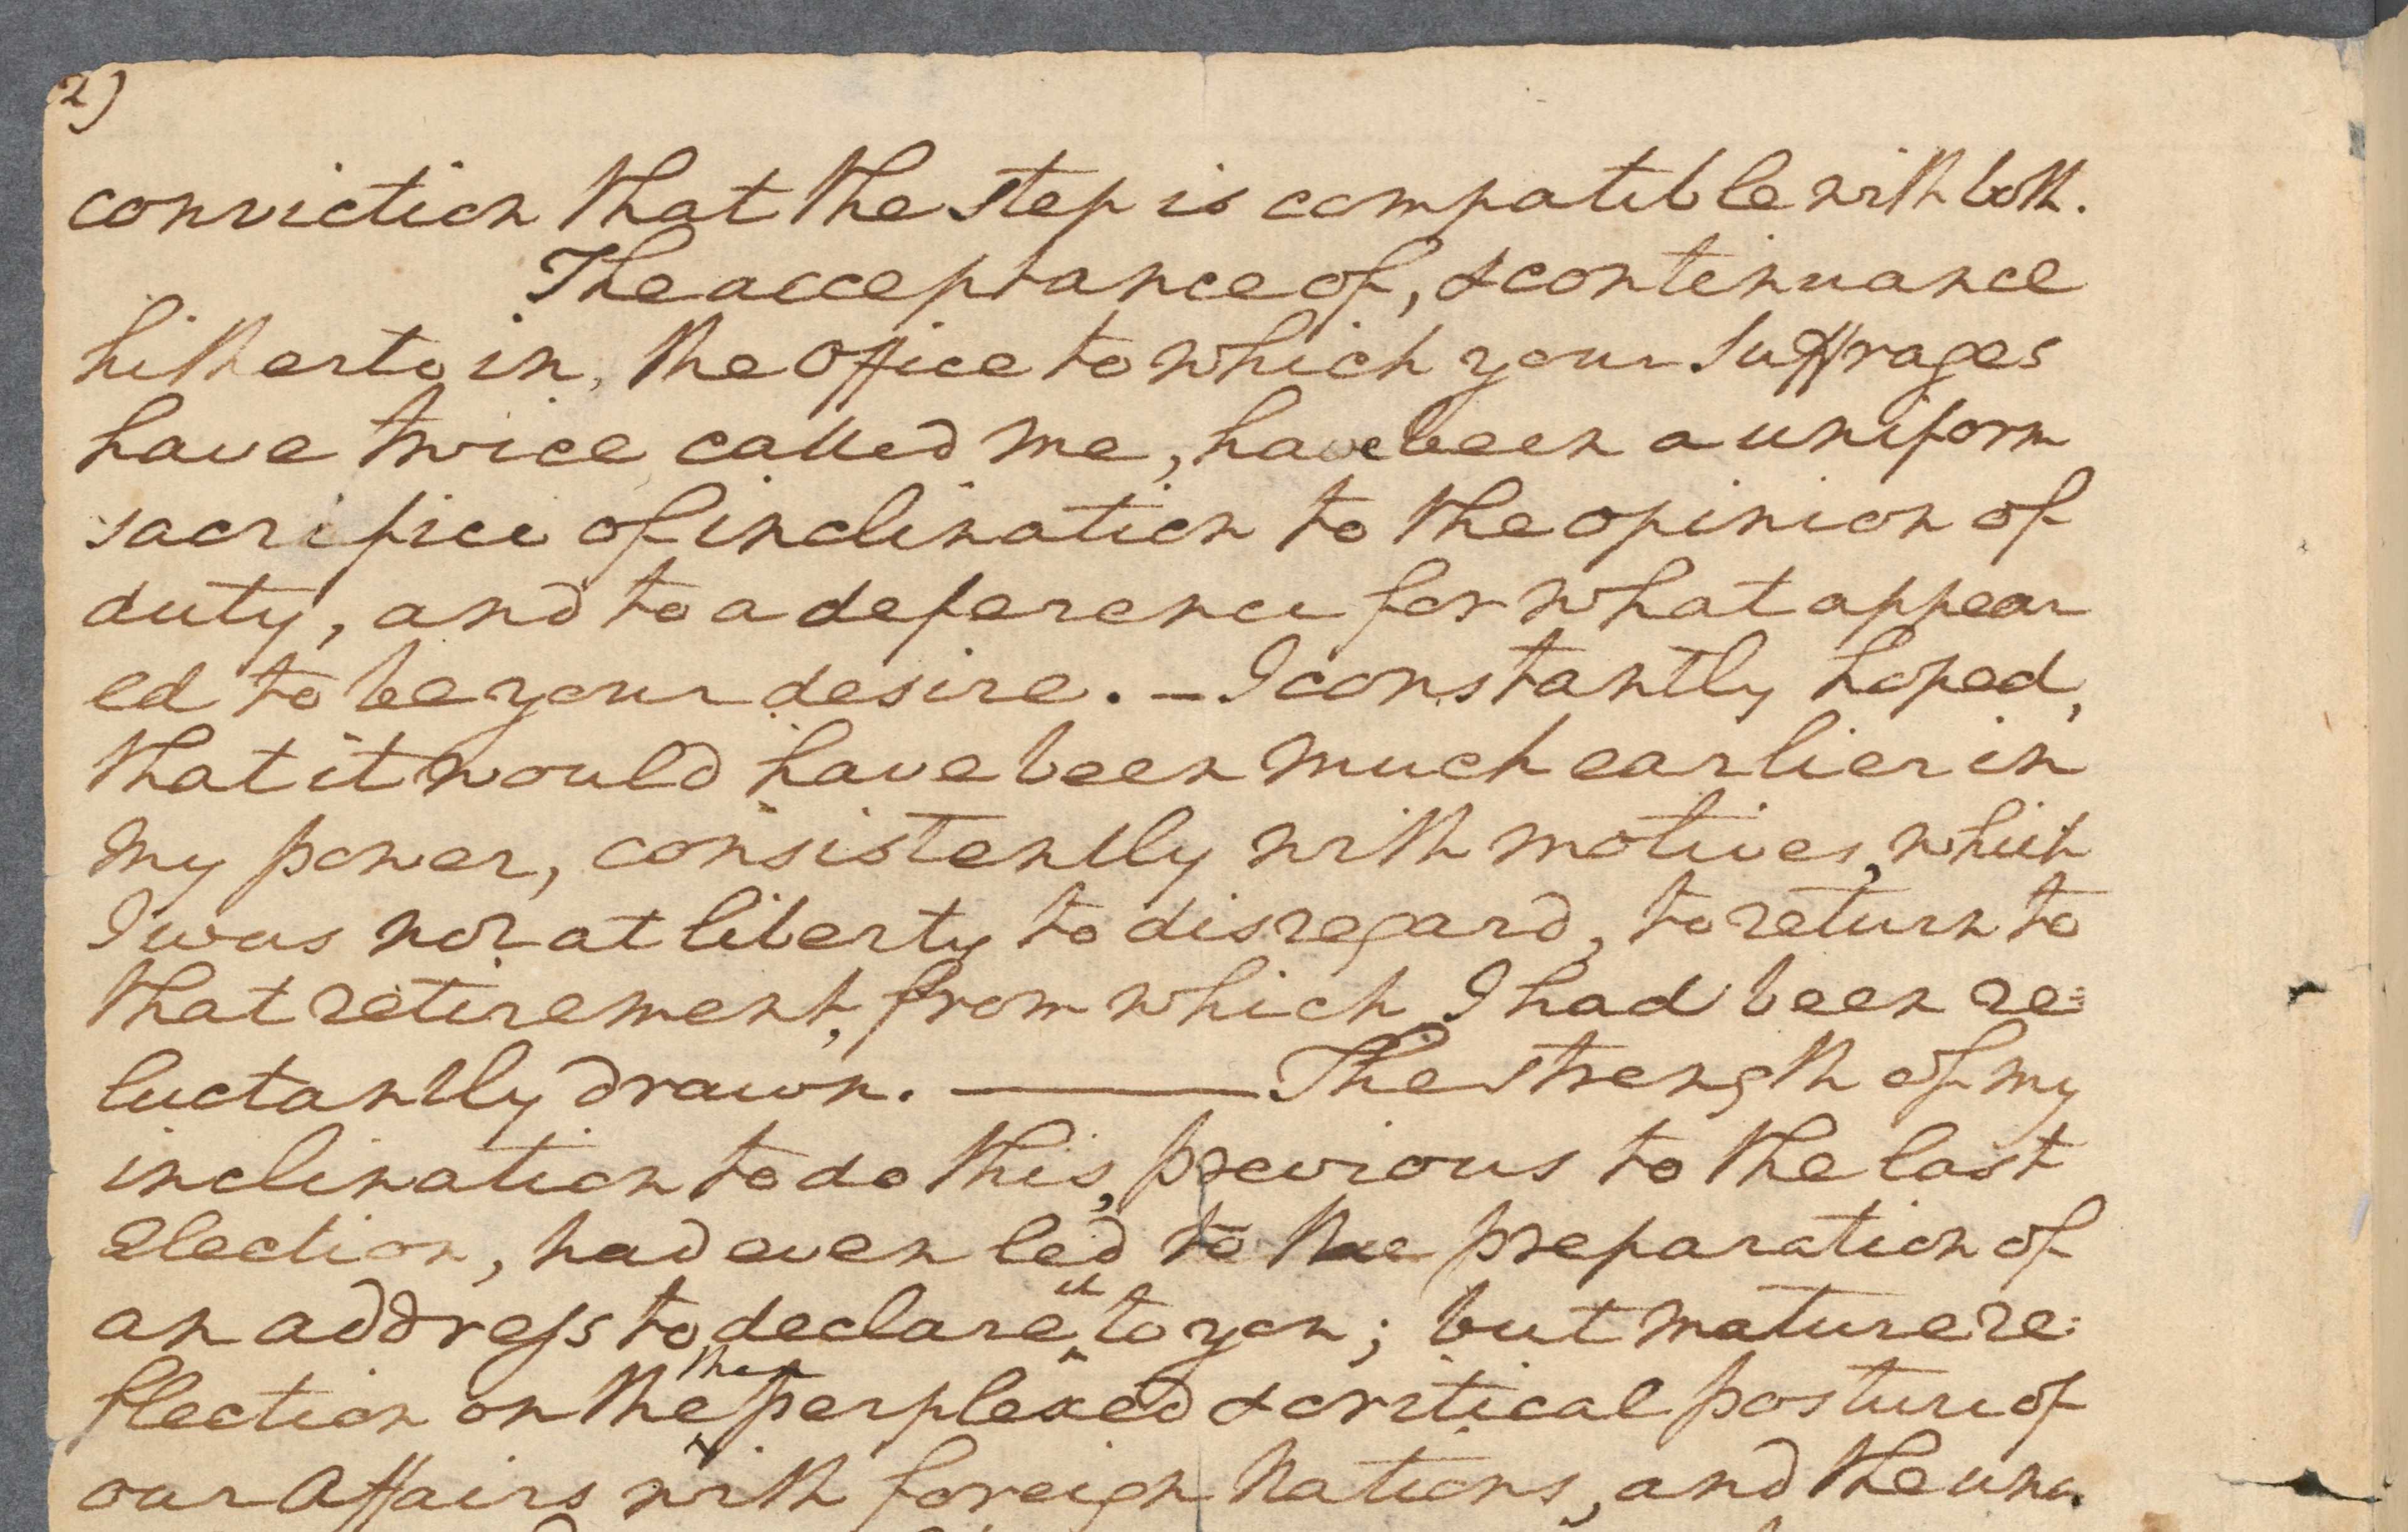 2)
conviction that the step is compatible with both.
The acceptance of, & continuance
hitherto in, the office to which your Suffrages
have twice called me, have been a uniform
sacrifice of inclination to the opinion of
duty, and to a deference for what appear
ed to be your desire. — I constantly hoped,
that it would have been much earlier in
my power, consistently with motives, which
I was not at liberty to disregard, to return to
that retirement, from which I had been re=
luctantly drawn. — The strength of my
inclination to do this, previous to the last
election, had even led to the preparation of
an address to declare it to you; but mature re:
flection on the then perplexed & critical posture of
our Affairs with foreign Nations, and the una